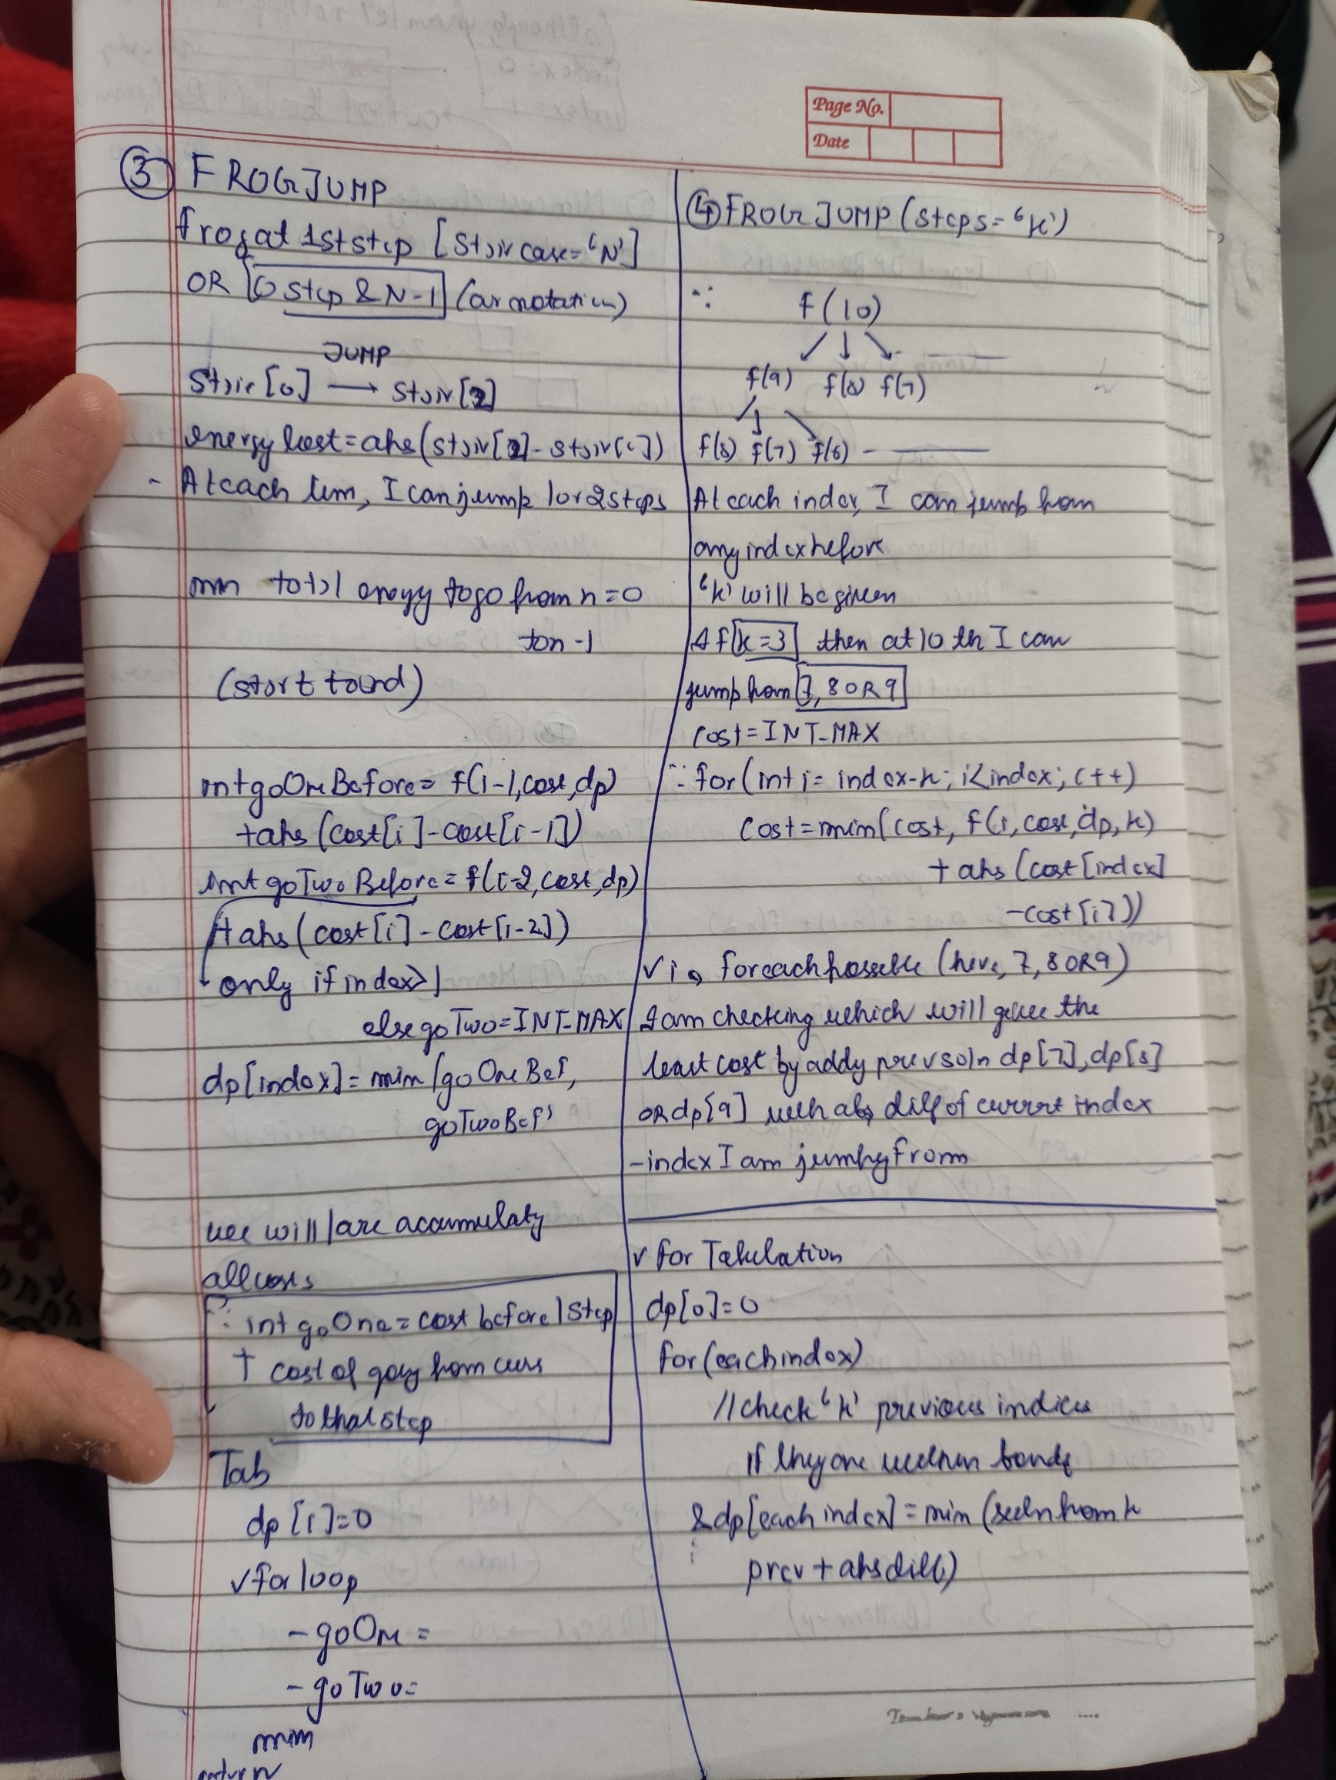 Page No.
Date
③ FROG JUMP
frog at 1st step [Stair case = 'N']
OR 0 step & N-1 (our notation)
JUMP
Stair[0] → Stair[2]
energy lost = abs(stair[2] - stair[0])
- At each time, I can jump 1 or 2 steps
min total energy to go from n=0
to n-1
(start to end)
int goOneBefore = f(i-1, cost, dp)
+ abs(cost[i] - cost[i-1])
int goTwoBefore = f(i-2, cost, dp)
+ abs(cost[i] - cost[i-2])
only if index>1
else goTwo = INT_MAX
dp[index] = min(goOneBef,
goTwoBef)
we will/are accumulating
all costs
∴ int goOne = cost before 1 step
+ cost of going from curr
to that step
Tab
dp[i]=0
✓ for loop
- goOne =
- goTwo =
min
return
④ FROG JUMP (steps = 'k')
∵ f(10)
f(9) f(8) f(7)
f(8) f(7) f(6) -
At each index, I can jump from
any index before
'k' will be given
If k=3 then at 10th I can
jump from 7, 8 OR 9
cost = INT_MAX
∴ for(int i = index-k; i<index; i++)
cost = min(cost, f(i, cost, dp, k)
+ abs(cost[index]
- cost[i]))
✓ i, for each possible (here, 7, 8 OR 9)
I am checking which will give the
least cost by adding prev soln dp[7], dp[8]
OR dp[9] with abs diff of current index
- index I am jumping from
✓ for Tabulation
dp[0]=0
for(each index)
//check 'k' previous indices
if they are within bounds
& dp[each index] = min(soln from k
prev + abs diff)